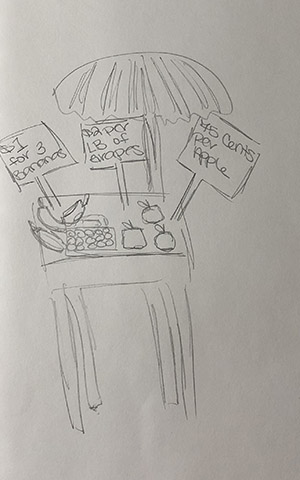 $1
for 3
Bananas
$2 per
LB of
grapes
45 Cents
per
Apple